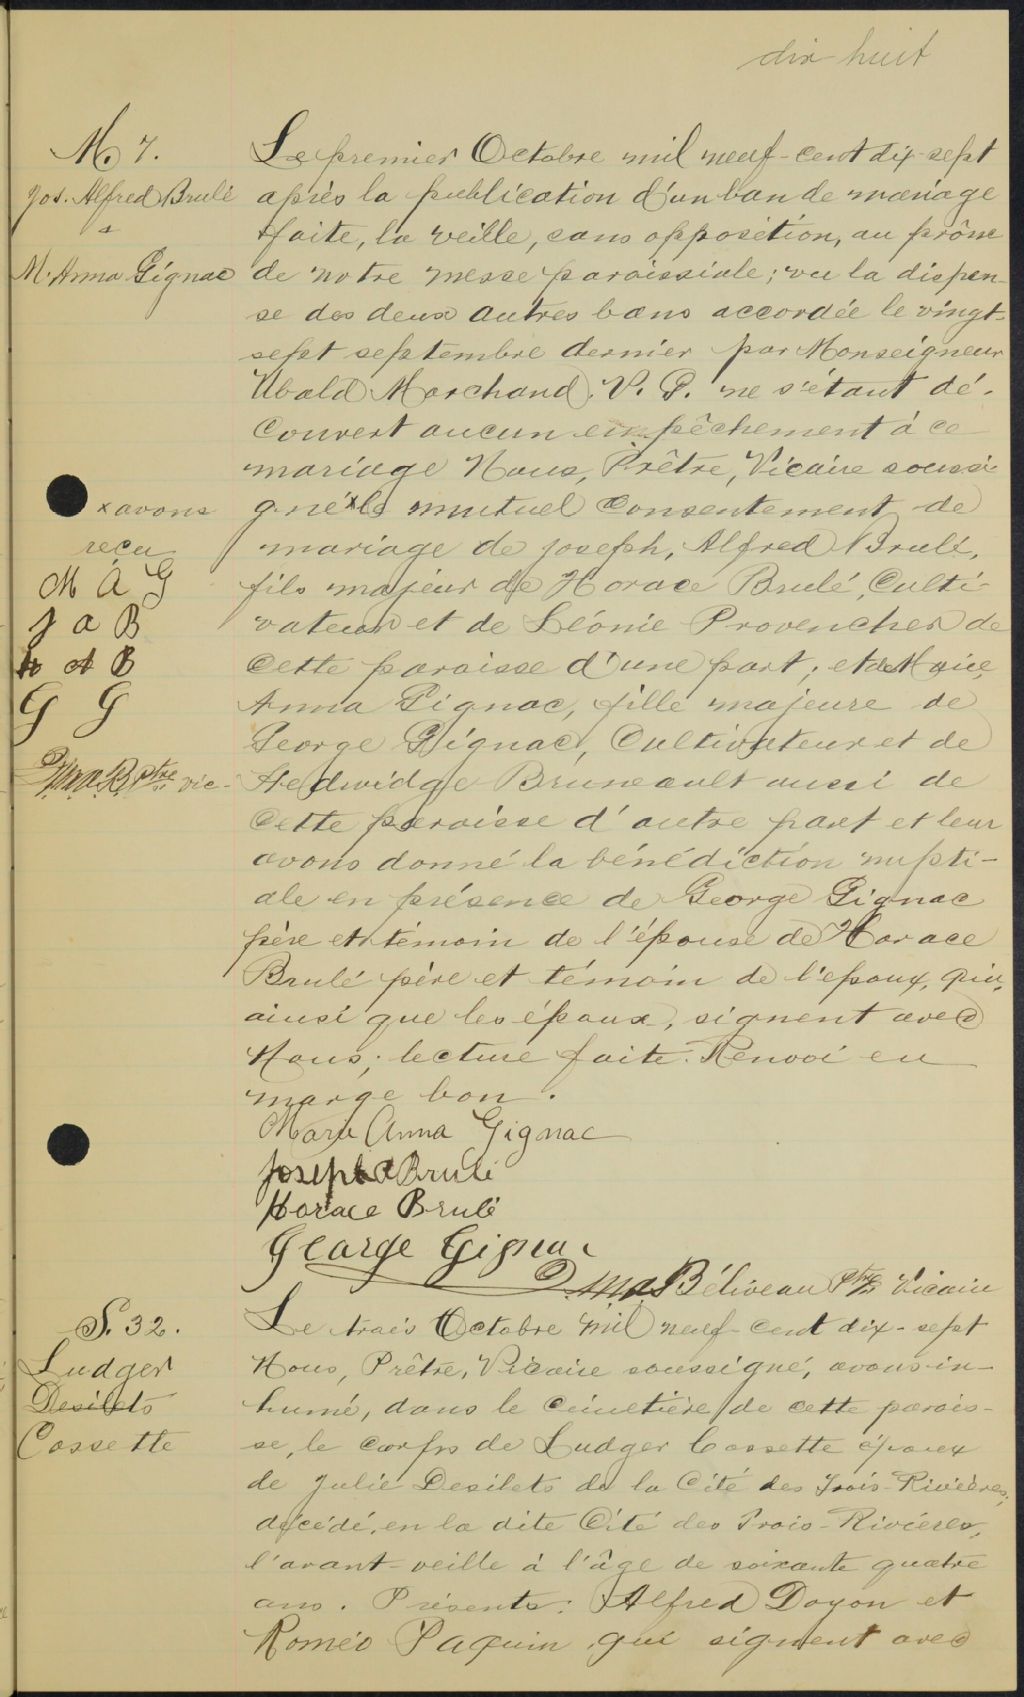 dix huit
M. 7.
Jos. Alfred Brulé
&
M. Anna Gignac
Le premier Octobre mil neuf-cent dix-sept
après la publication d'un ban de mariage
faite, la veille, sans opposition, au prône
de notre messe paroissiale; vu la dispen-
se des deux autres bans accordée le vingt-
sept septembre dernier par Monseigneur
Ubald Marchand, V. G. ne s'étant dé-
couvert aucun empêchement à ce
mariage Nous, Prêtre, Vicaire soussi-
gné x le mutuel consentement de
mariage de Joseph, Alfred Brulé,
fils majeur de Horace Brulé, Culti-
vateur et de Léonie Provencher de
cette paroisse d'une part; et de Marie,
Anna Gignac, fille majeure de
George Gignac, Cultivateur et de
Hedwidge Bruneault aussi de
cette paroisse d'autre part et leur
avons donné la bénédiction nupti-
ale en présence de George Gignac
père et témoin de l'épouse de Horace
Brulé père et témoin de l'époux, qui,
ainsi que les époux, signent avec
Nous; lecture faite. Renvoi en
marge bon.
x avons
reçu
M A G
J a B
H A B
G G
Ptre vic-
Marie Anna Gignac
Joseph A Brulé
Horace Brulé
George Gignac
Béliveau Ptre Vicaire
S. 32.
Ludger
Desilets
Cossette
Le trois Octobre mil neuf-cent dix-sept
Nous, Prêtre, Vicaire soussigné, avons in-
humé, dans le cimetière de cette parois-
se, le corps de Ludger Cossette époux
de Julie Desilets de la Cité des Trois-Rivières;
décédé, en la dite Cité des Trois-Rivières,
l'avant-veille à l'âge de soixante quatre
ans. Présents: Alfred Doyon et
Roméo Paquin qui signent avec